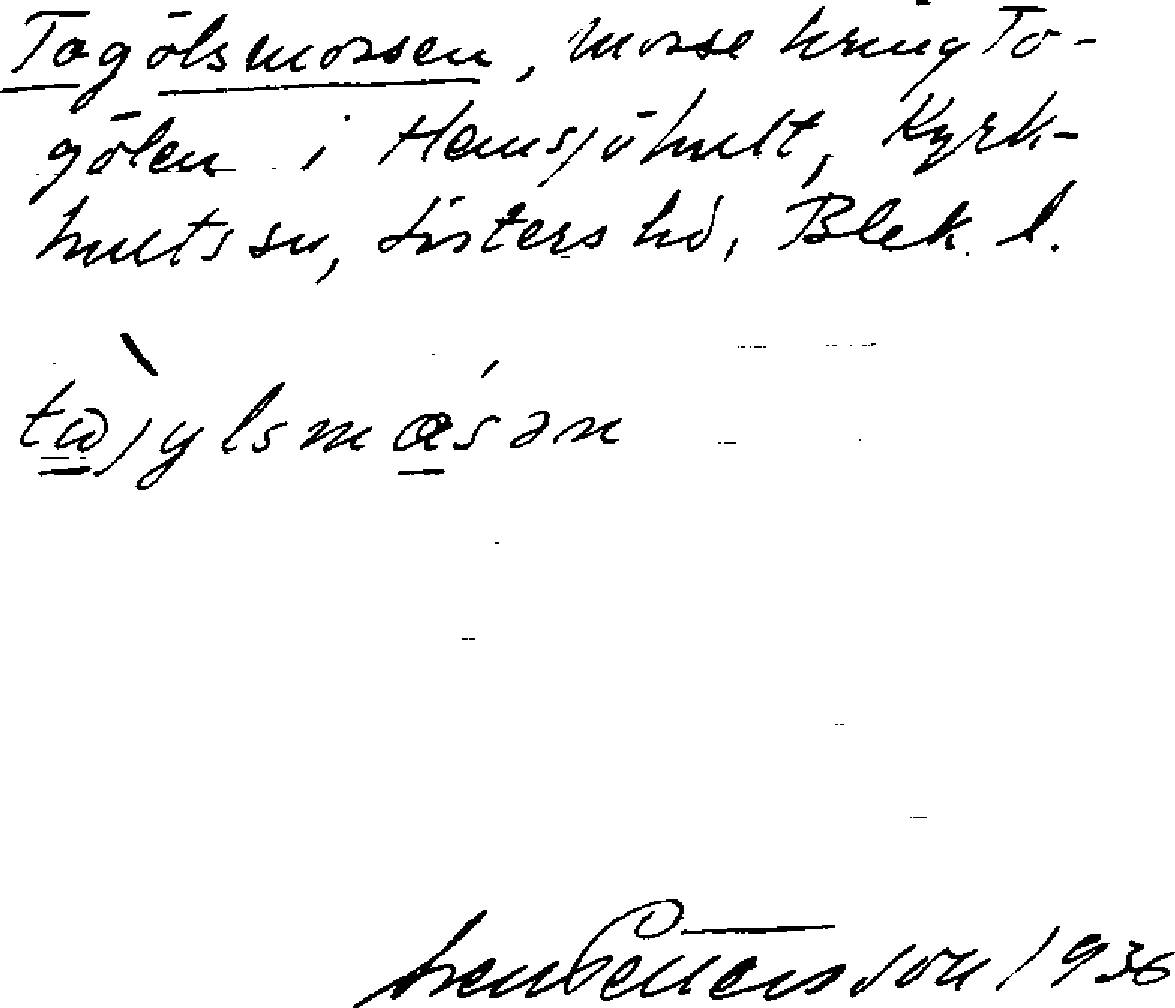 Togölsmossen, mosse kring To-
gölen i Hemsjöhult, Kyrk-
hults sn, Listers hd, Blek. l.
Sven Pettersson 1936